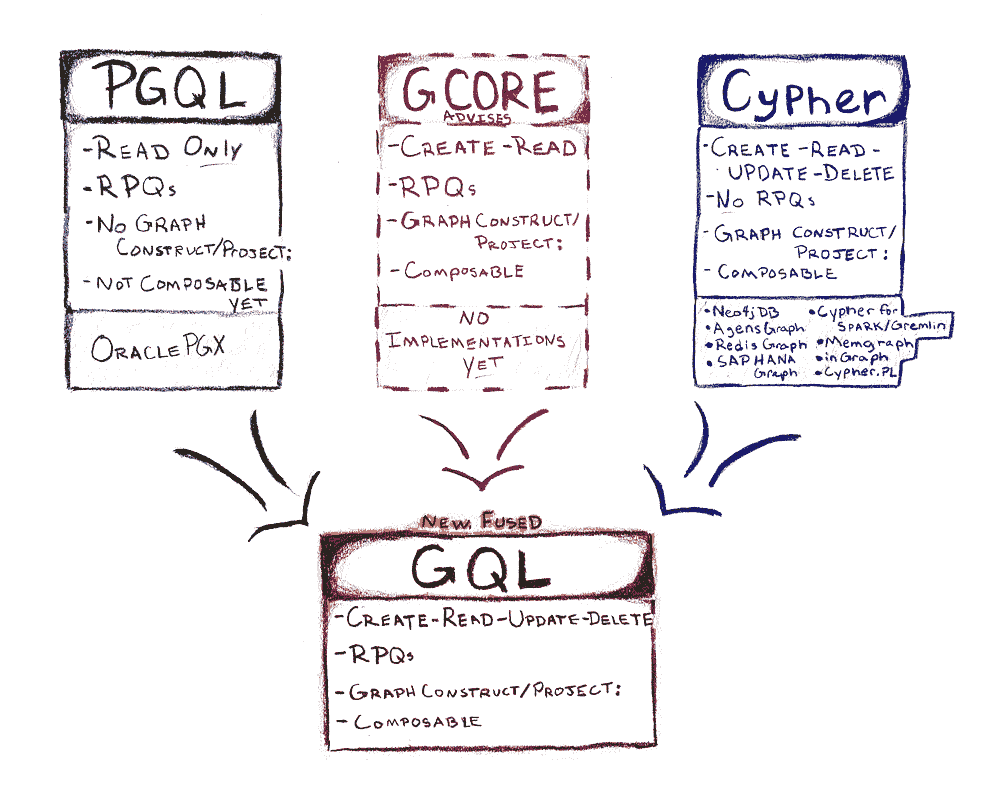 PGQL
- READ ONLY
- RPQs
- NO GRAPH
CONSTRUCT/PROJECT:
- NOT COMPOSABLE
YET
ORACLE PGX
GCORE
ADVISES
- CREATE - READ
- RPQs
- GRAPH CONSTRUCT/
PROJECT:
- COMPOSABLE
NO
IMPLEMENTATIONS
YET
Cypher
- CREATE - READ -
UPDATE - DELETE
- NO RPQs
- GRAPH CONSTRUCT/
PROJECT:
- COMPOSABLE
• Neo4j DB
• AgensGraph
• RedisGraph
• SAP HANA
Graph
• Cypher for
SPARK/Gremlin
• Memgraph
• inGraph
• Cypher.PL
NEW FUSED
GQL
- CREATE - READ - UPDATE - DELETE
- RPQs
- GRAPH CONSTRUCT/PROJECT:
- COMPOSABLE